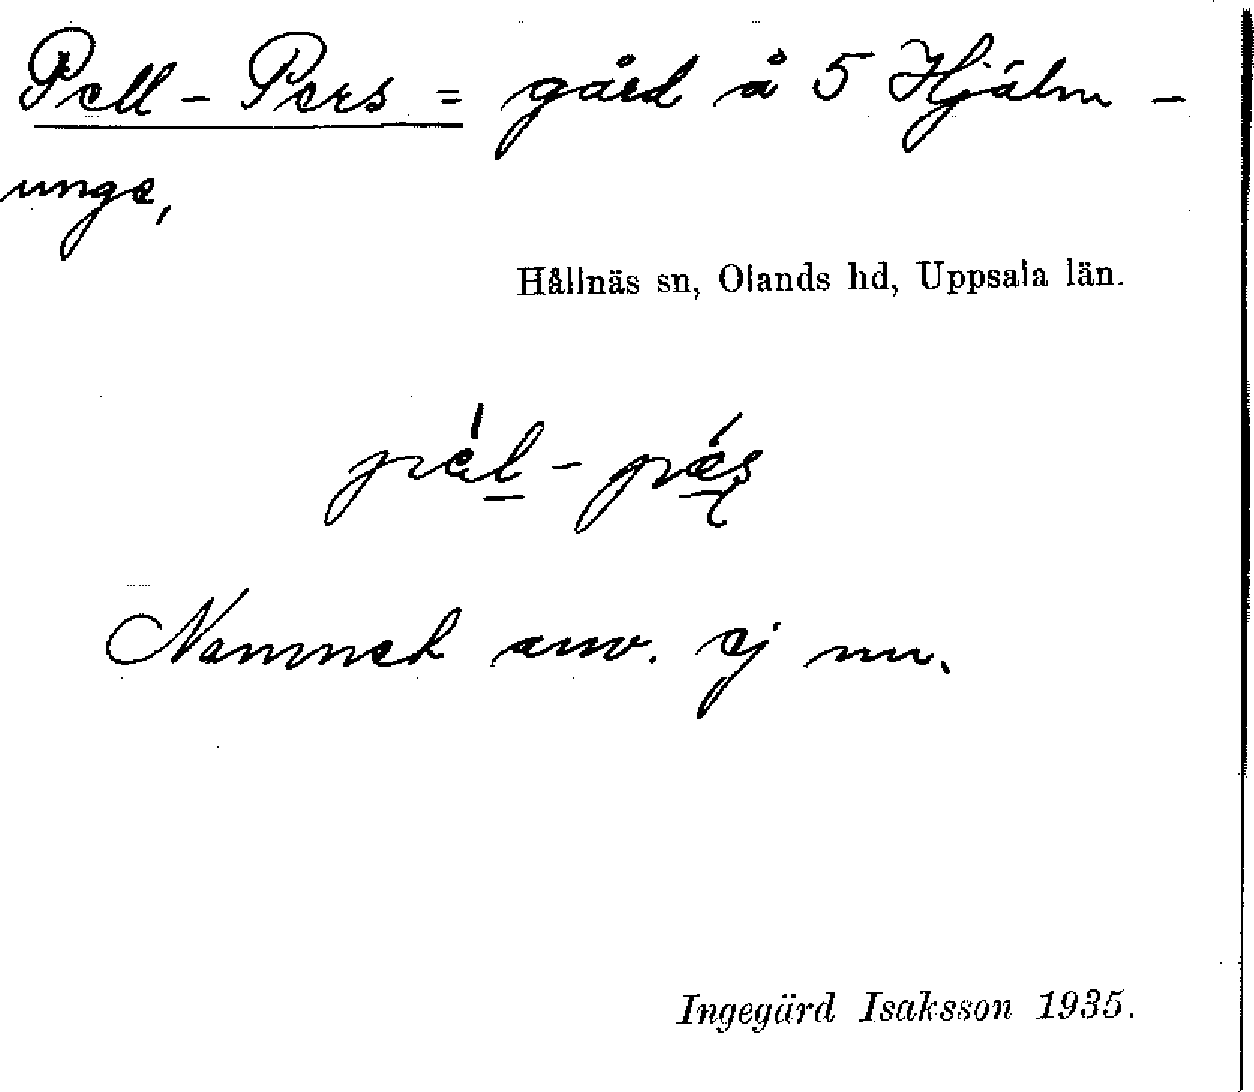 Pell-Pers = gård å 5 Hjälm-
unge,
Hållnäs sn, Olands hd, Uppsala län.
Namnet anv. ej nu.
Ingegärd Isaksson 1935.